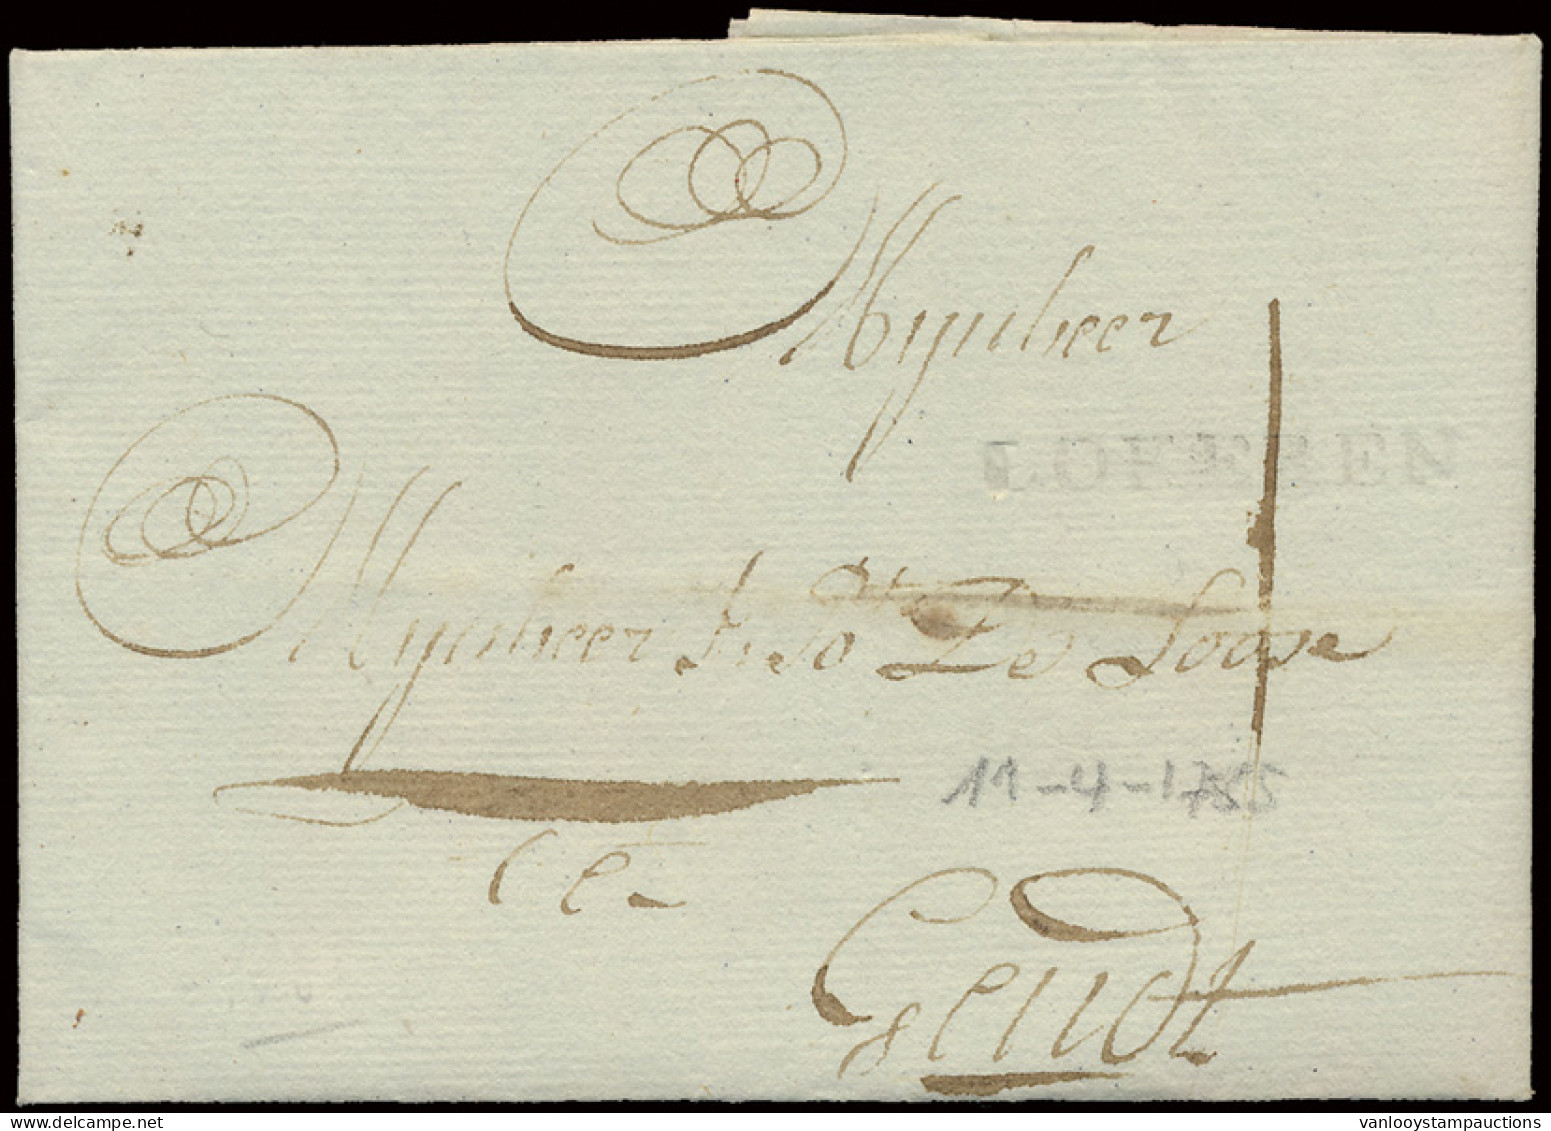 Mynheer
LOKEREN
Mynheer De Loose
11-4-1785
te
Gendt
vanlooystampauctions